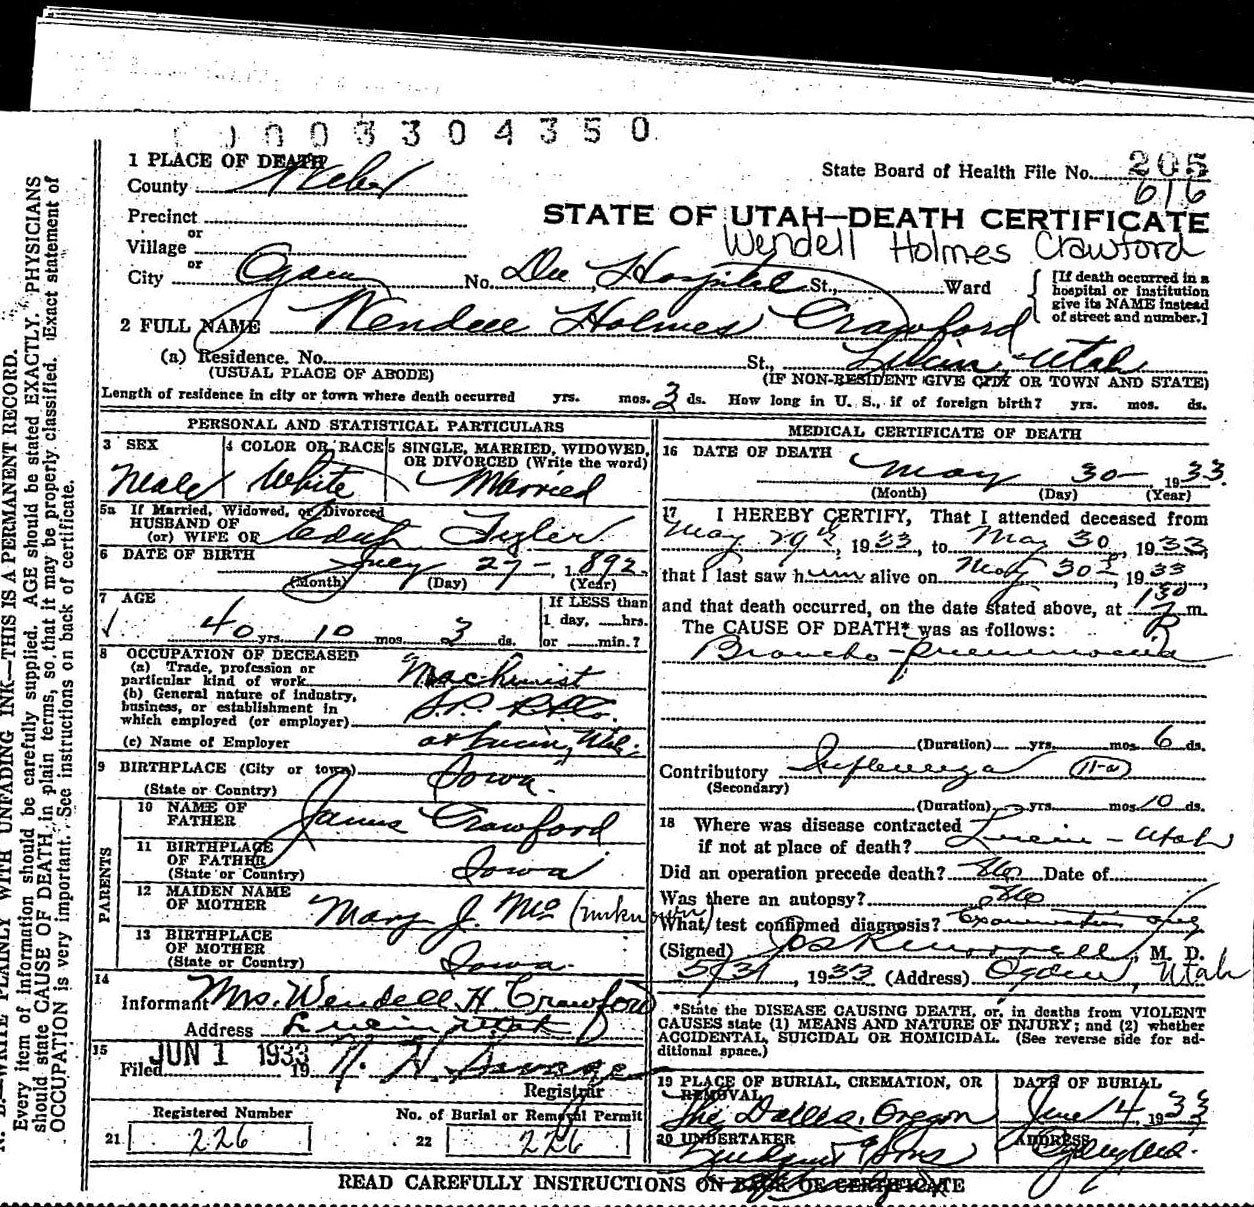 0003304350
1 PLACE OF DEATH
County Weber
State Board of Health File No. 205
616
Precinct
or
Village
or
STATE OF UTAH—DEATH CERTIFICATE
Wendell Holmes Crawford
City Ogden No. Dee Hospital St., Ward
[If death occurred in a
hospital or institution
give its NAME instead
of street and number.]
2 FULL NAME Wendell Holmes Crawford
(a) Residence. No. St., Lucin, Utah
(USUAL PLACE OF ABODE) (IF NON-RESIDENT GIVE CITY OR TOWN AND STATE)
Length of residence in city or town where death occurred yrs. mos. 3 ds. How long in U. S., if of foreign birth? yrs. mos. ds.
PERSONAL AND STATISTICAL PARTICULARS
3 SEX
Male
4 COLOR OR RACE
White
5 SINGLE, MARRIED, WIDOWED,
OR DIVORCED (Write the word)
Married
5a If Married, Widowed, or Divorced
HUSBAND OF
(or) WIFE OF Edith
6 DATE OF BIRTH July 27—, 1892
(Month) (Day) (Year)
7 AGE
40 yrs. 10 mos. 3 ds.
If LESS than
1 day, hrs.
or min.?
8 OCCUPATION OF DECEASED
(a) Trade, profession or
particular kind of work Machinist
(b) General nature of industry,
business, or establishment in
which employed (or employer) S.P. R.R. Co.
(c) Name of Employer at Lucin, Utah
9 BIRTHPLACE (City or town)
(State or Country) Iowa.
PARENTS
10 NAME OF
FATHER James Crawford
11 BIRTHPLACE
OF FATHER
(State or Country) Iowa
12 MAIDEN NAME
OF MOTHER Mary J. Mc (unknown)
13 BIRTHPLACE
OF MOTHER
(State or Country) Iowa.
14
Informant Mrs. Wendell H. Crawford
Address Lucin, Utah
15
Filed JUN 1 1933 19
Registrar
Registered Number
21 226
No. of Burial or Removal Permit
22 226
MEDICAL CERTIFICATE OF DEATH
16 DATE OF DEATH
May 30— 1933.
(Month) (Day) (Year)
17 I HEREBY CERTIFY, That I attended deceased from
May 29th, 1933, to May 30, 1933,
that I last saw him alive on May 30, 1933,
and that death occurred, on the date stated above, at 130 P m.
The CAUSE OF DEATH* was as follows:
Broncho-pneumonia
(Duration) yrs. mos. 6 ds.
Contributory Influenza (11-a)
(Secondary)
(Duration) yrs. mos. 10 ds.
18 Where was disease contracted
if not at place of death? Lucin - Utah
Did an operation precede death? No Date of
Was there an autopsy? No
What test confirmed diagnosis? Examination
(Signed) M. D.
5/31, 1933 (Address) Ogden, Utah
*State the DISEASE CAUSING DEATH, or, in deaths from VIOLENT
CAUSES state (1) MEANS AND NATURE OF INJURY; and (2) whether
ACCIDENTAL, SUICIDAL OR HOMICIDAL. (See reverse side for ad-
ditional space.)
19 PLACE OF BURIAL, CREMATION, OR
REMOVAL
The Dalles, Oregon
DATE OF BURIAL
June 4 1933
20 UNDERTAKER
& Sons
ADDRESS
READ CAREFULLY INSTRUCTIONS ON BACK OF CERTIFICATE
N. B.—WRITE PLAINLY WITH UNFADING INK—THIS IS A PERMANENT RECORD.
Every item of information should be carefully supplied. AGE should be stated EXACTLY. PHYSICIANS
should state CAUSE OF DEATH in plain terms, so that it may be properly classified. Exact statement of
OCCUPATION is very important. See instructions on back of certificate.